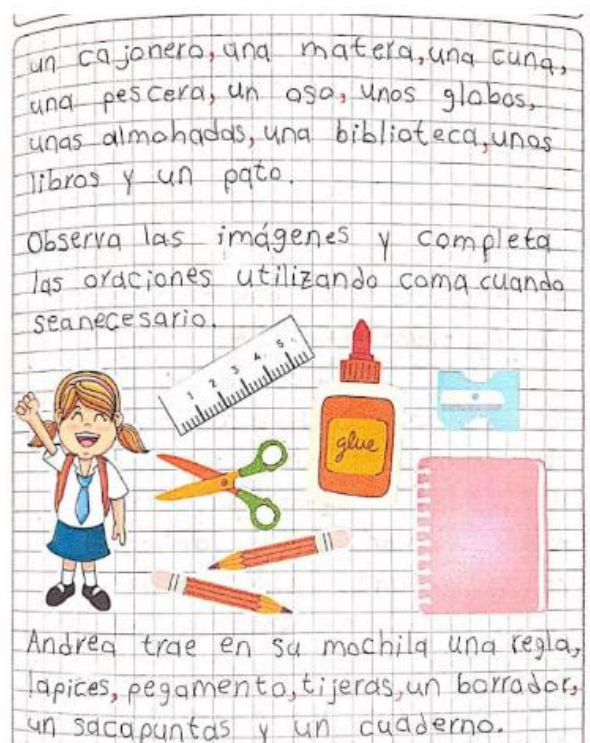 un cajonero, una matera, una cuna,
una pescera, un oso, unos globos,
unas almohadas, una biblioteca, unos
libros y un pato.
Observa las imágenes y completa
las oraciones utilizando coma cuando
seanecesario.
1 2 3 4 5
glue
Andrea trae en su mochila una regla,
lapices, pegamento, tijeras, un borrador,
un sacapuntas y un cuaderno.